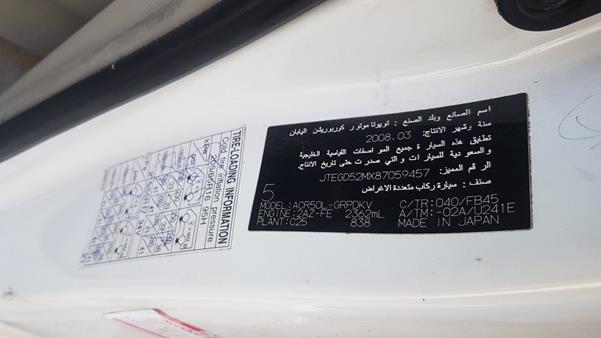 اسم الصانع وبلد الصنع : تويوتا موتور كوربوريشن اليابان
سنة وشهر الانتاج: 2008.03
تطابق هذه السيارة جميع المواصفات القياسية الخليجية
والسعودية للسيارات والتي صدرت حتى تاريخ الانتاج.
الرقم المميز: JTEGD52MX87059457
صنف : سيارة ركاب متعددة الاغراض
5
MODEL:ACR50L-GRPDKV C/TR:040/FB45
ENGINE:2AZ-FE 2362mL A/TM:-02A/U241E
PLANT:C25 838 MADE IN JAPAN
TIRE LOADING INFORMATION
Cold tire inflation pressure